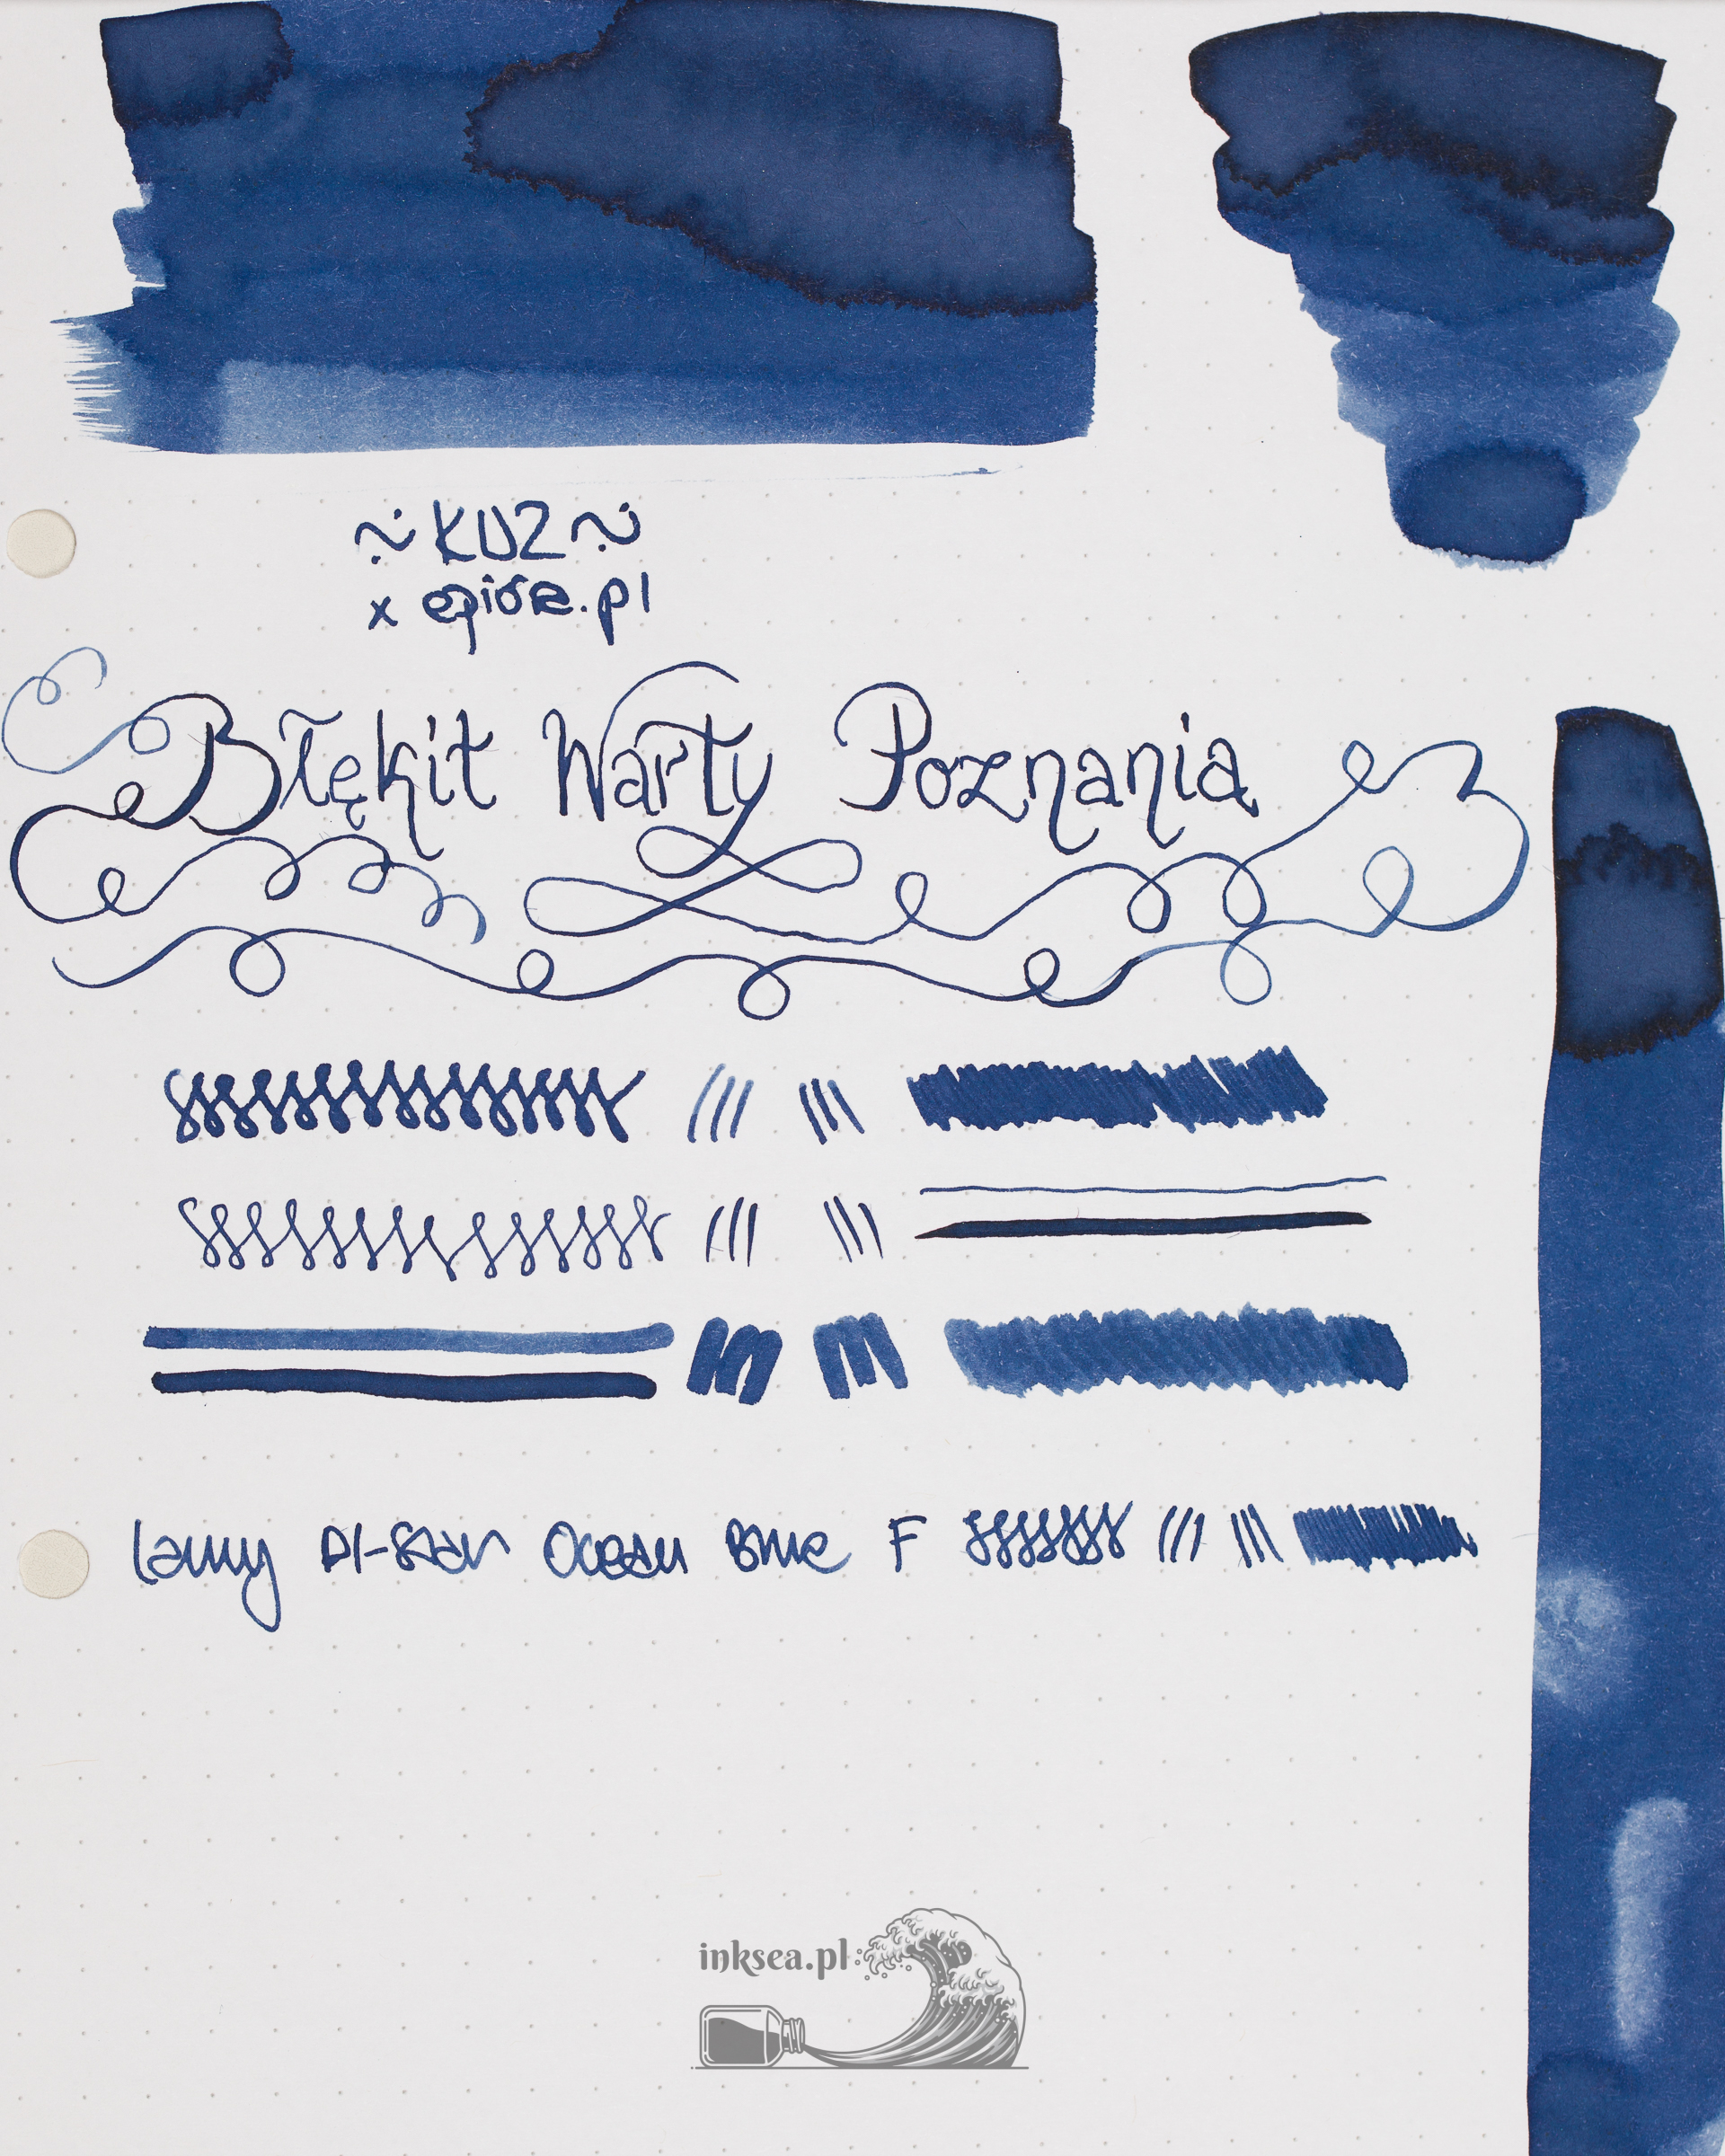 ~ KWZ ~
x epióra.pl
Błękit Warty Poznania
Lamy Al-Star Ocean Blue F
inksea.pl